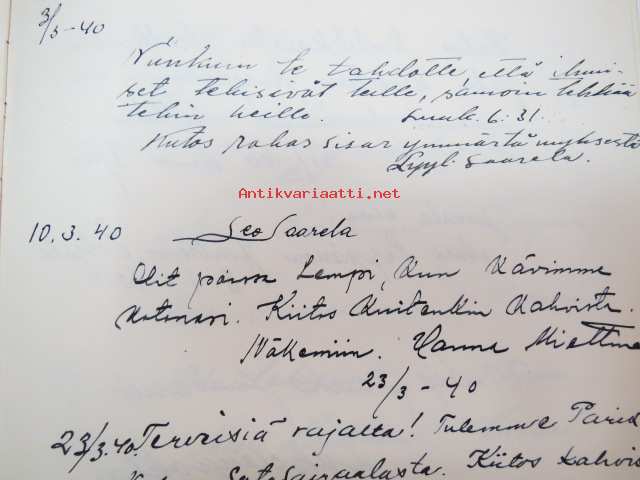 3/3 - 40
Niinkuin te tahdotte, että ihmi-
set tekisivät teille, samoin tehkää
tekin heille. Luuk. 6:31.
Kiitos rakas sisar ymmärtämyksestä
Lyyli Saarela.
Antikvariaatti.net
10.3.40 Leo Saarela
Olit poissa Lempi, kun kävimme
kotonasi. Kiitos kuitenkin kahvista.
Näkemiin. Hanna Miettine
23/3 - 40
23/3.40. Terveisiä rajalta! Tulemme
Sotasairaalasta. Kiitos kahvis